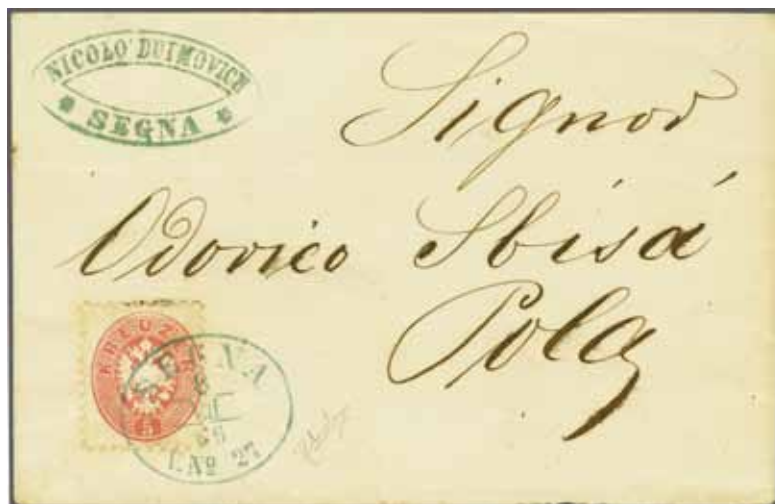 NICOLO' DUIMOVICH
SEGNA
Signor
Odorico Sbisá
Pola
KREUZER
5
SEGNA
L. Nº 27